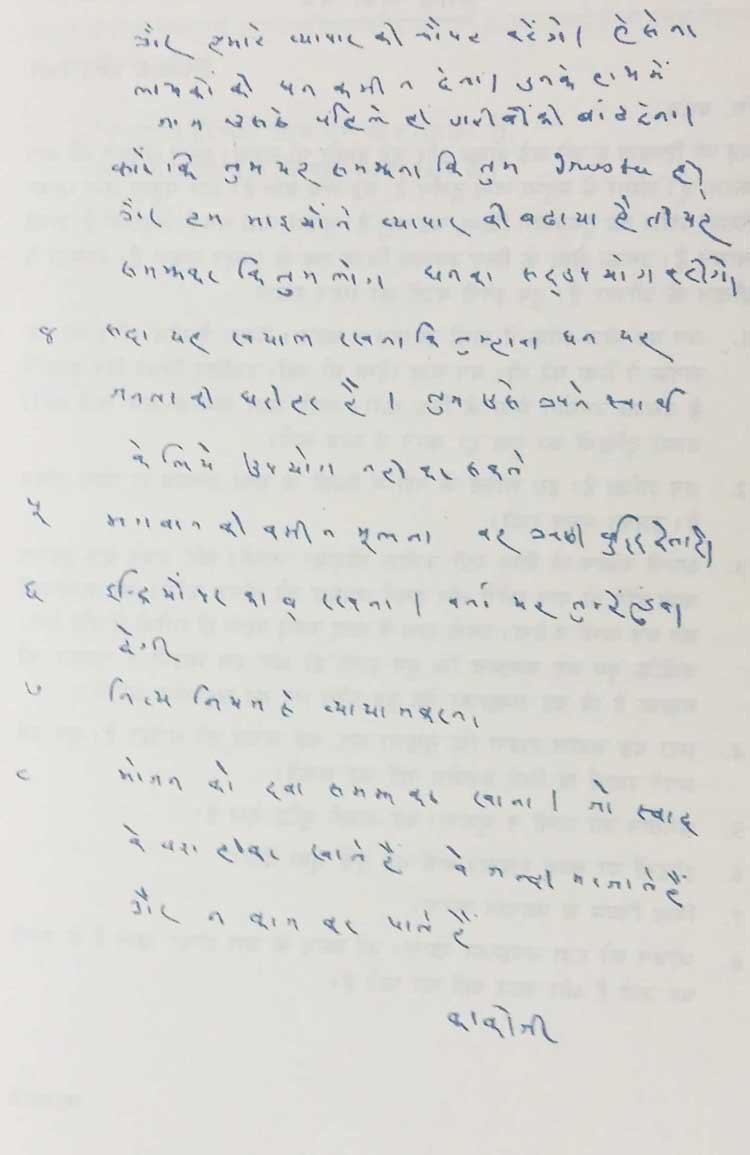 और हमारे व्यापार को चौपट करेंगे। ऐसे ना
लायकों को धन कभी न देना। उनके हाथ में
जाय उसके पहिले ही गरीबों को बांट देना।
क्यों कि तुम यह समझना कि तुम trustee हो
और हम भाइयों ने व्यापार को बढाया है तो यह
समझकर कि तुम लोग धन का सदुउपयोग करोगे।
४ सदा यह ख्याल रखना कि तुम्हारा धन यह
जनता की धरोहर है। तुम उसे अपने स्वार्थ
के लिये उपयोग नहीं कर सकते
५ भगवान को कभी न भूलना वह अच्छी बुद्धि देता है।
६ इन्द्रियों पर काबु रखना। वर्ना यह तुम्हे डुबा
देगी
७ नित्य नियम से व्यायाम करना।
८ भोजन को दवा समझ कर खाना। जो स्वाद
के वश होकर खाते हैं वे जल्दी मर जाते हैं
और न काम कर पाते हैं